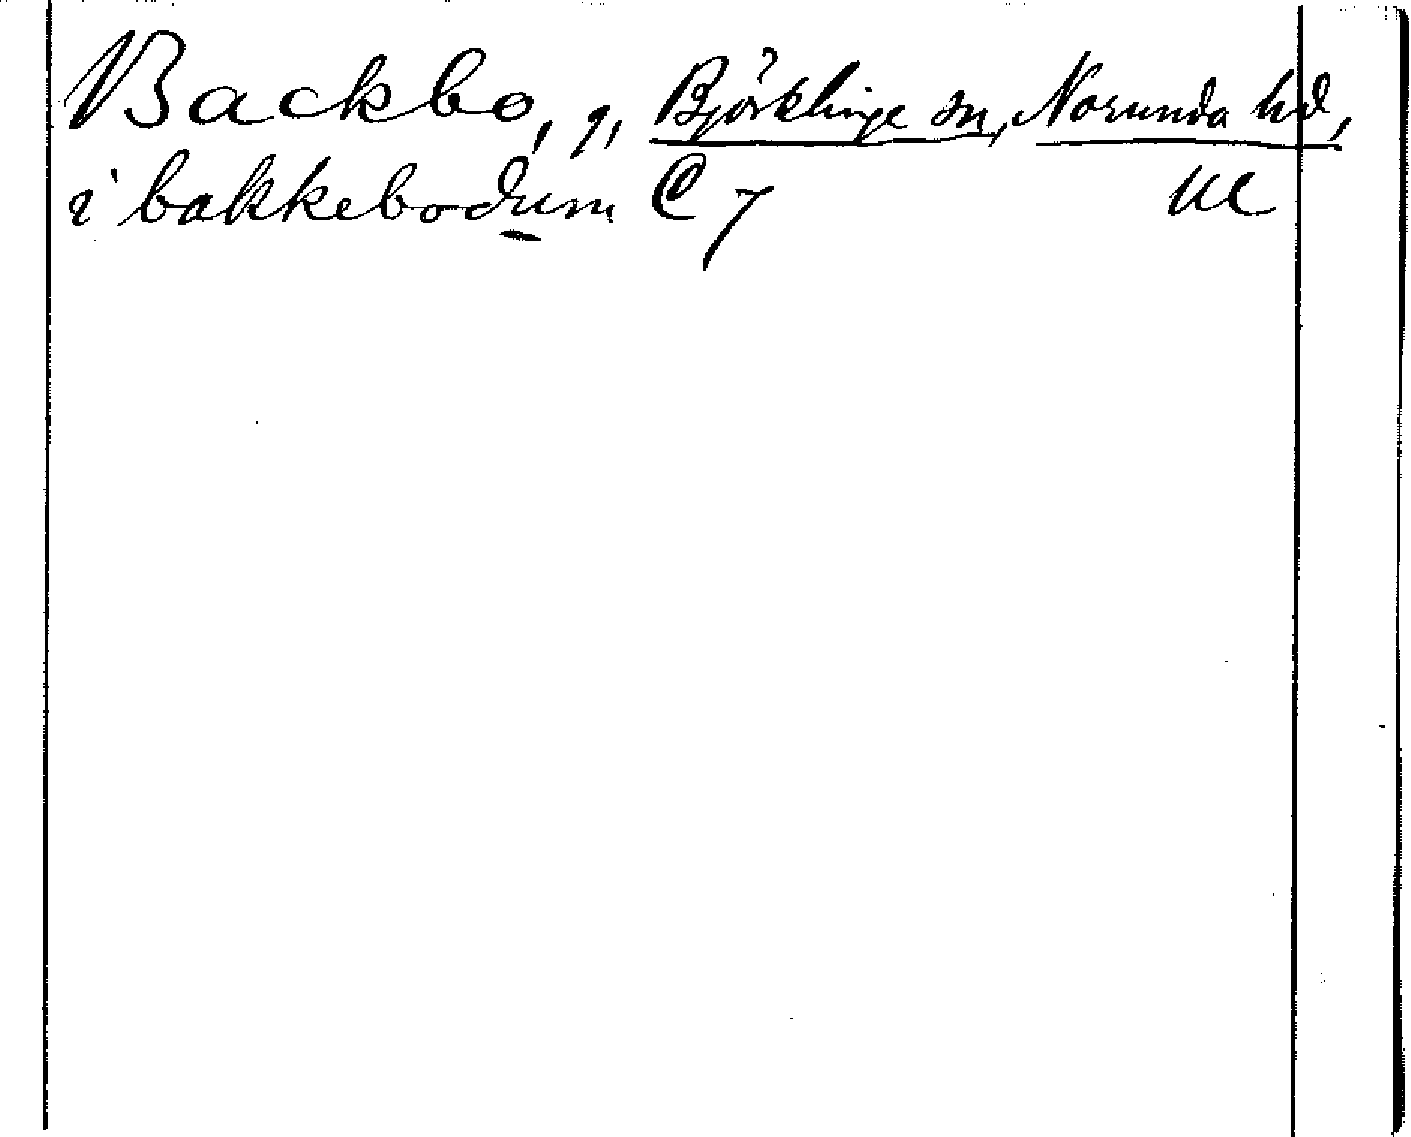 Backbo, g, Björklinge sn, Norunda hd,
i bakkebodum C 7 Ul